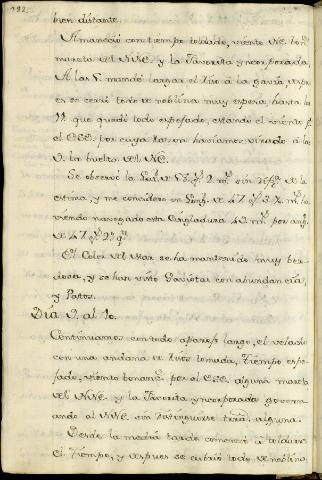 192.
bien distante.
Amaneció con tiempo toldado, viento NE. con
mareta del NNE. y la Favorita yncorporada,
A las 5. mandé largar el rizo á la gavia despu
es se cerró todo de neblina muy espesa, hasta las
11. que quedó todo despejado, estando el viento pr.
el ESE. por cuya razon haviamos virado á las
9. la buelta del NE.
Se observó la Latd. de 58. gs. 2. ms. sin difa. de la
estima, y me considero en Longd. de 47 gs. 34. ms. ha
viendo navegado esta singladura 42. ms. por angº.
de 47. gs. 2º. qte.
El Color del Mar se ha mantenido muy ber
dosa, y se han visto Gaviotas con abundancia,
y Patos.
Dia 9. al 10.
Continuamos con todo aparejo largo, el velacho
con una andana de rizos tomada, tiempo espe
jado, viento bonansible por el ESE. alguna mareta
del NNE. y la Favorita yncorporada govern
ando al NNE. sin distinguirse tierra alguna.
Desde la media tarde comensó á toldarse
el tiempo, y despues se cubrió todo de neblina,